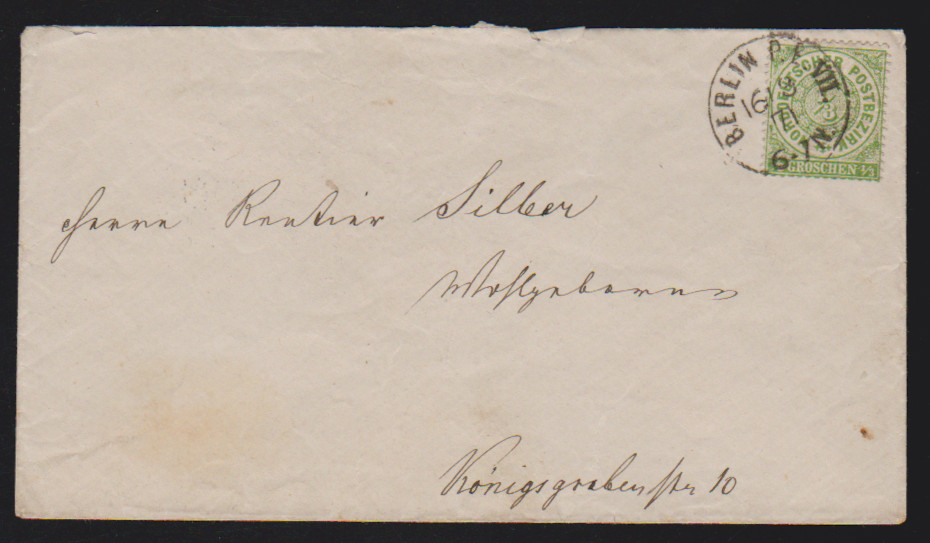 BERLIN P.E. VII.
16 9 71
6-7 N.
NORDDEUTSCHER POSTBEZIRK
1/3
GROSCHEN 1/3
Herrn Rentier Silber
Wohlgeboren
Königsgrabenstr 10